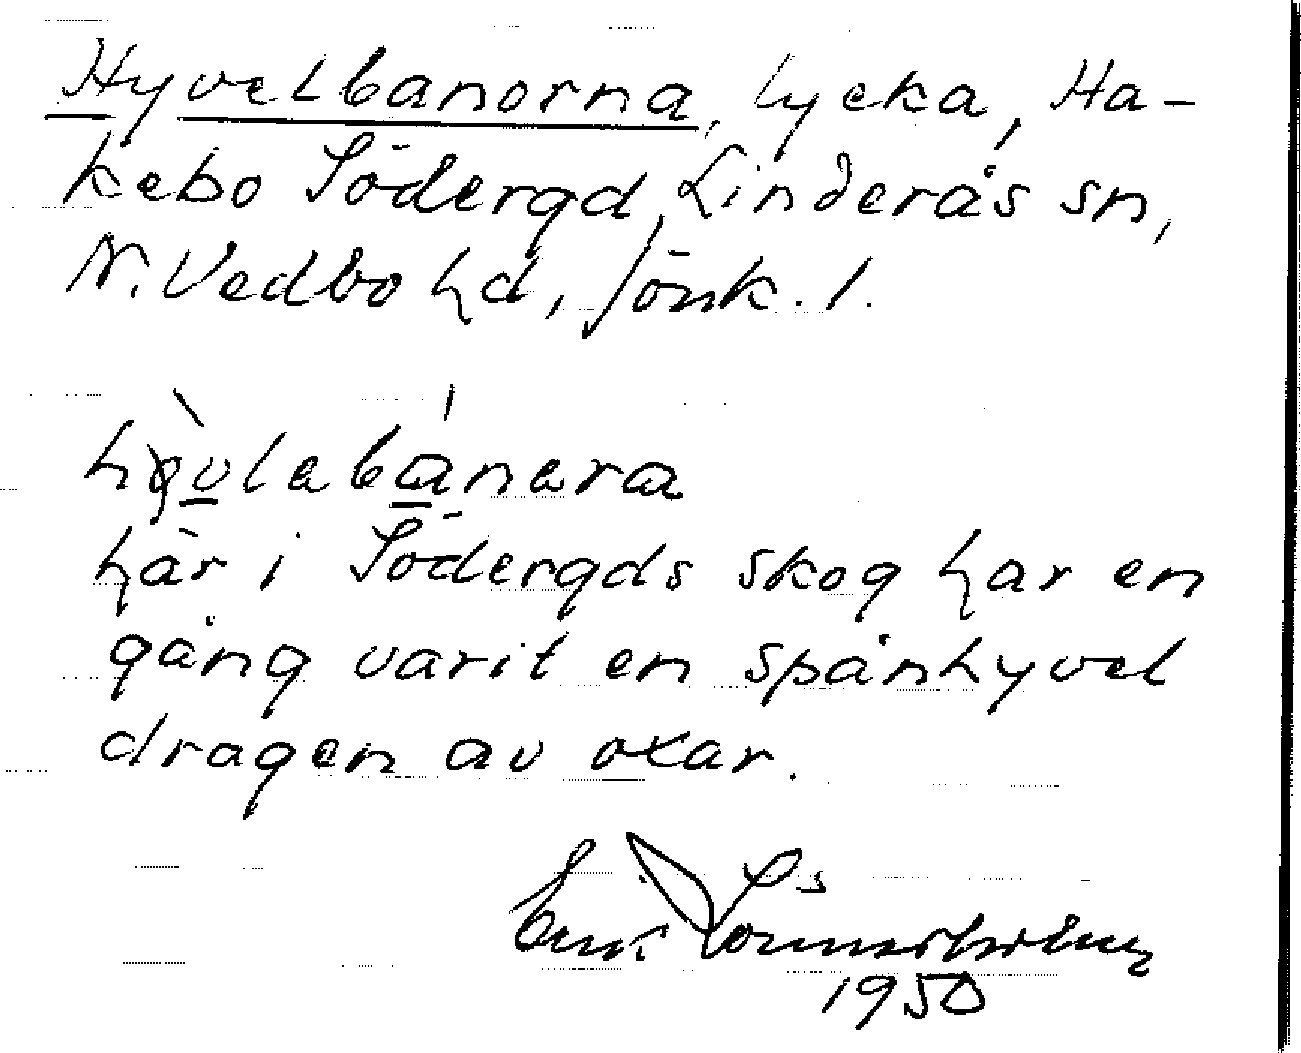 Hyvelbanorna, lycka, Ha-
kebo Södergd, Linderås sn,
N. Vedbo hd, Jönk. l.
høvlebanera
här i Södergds skog har en
gång varit en spånhyvel
dragen av oxar.
Erik
1950